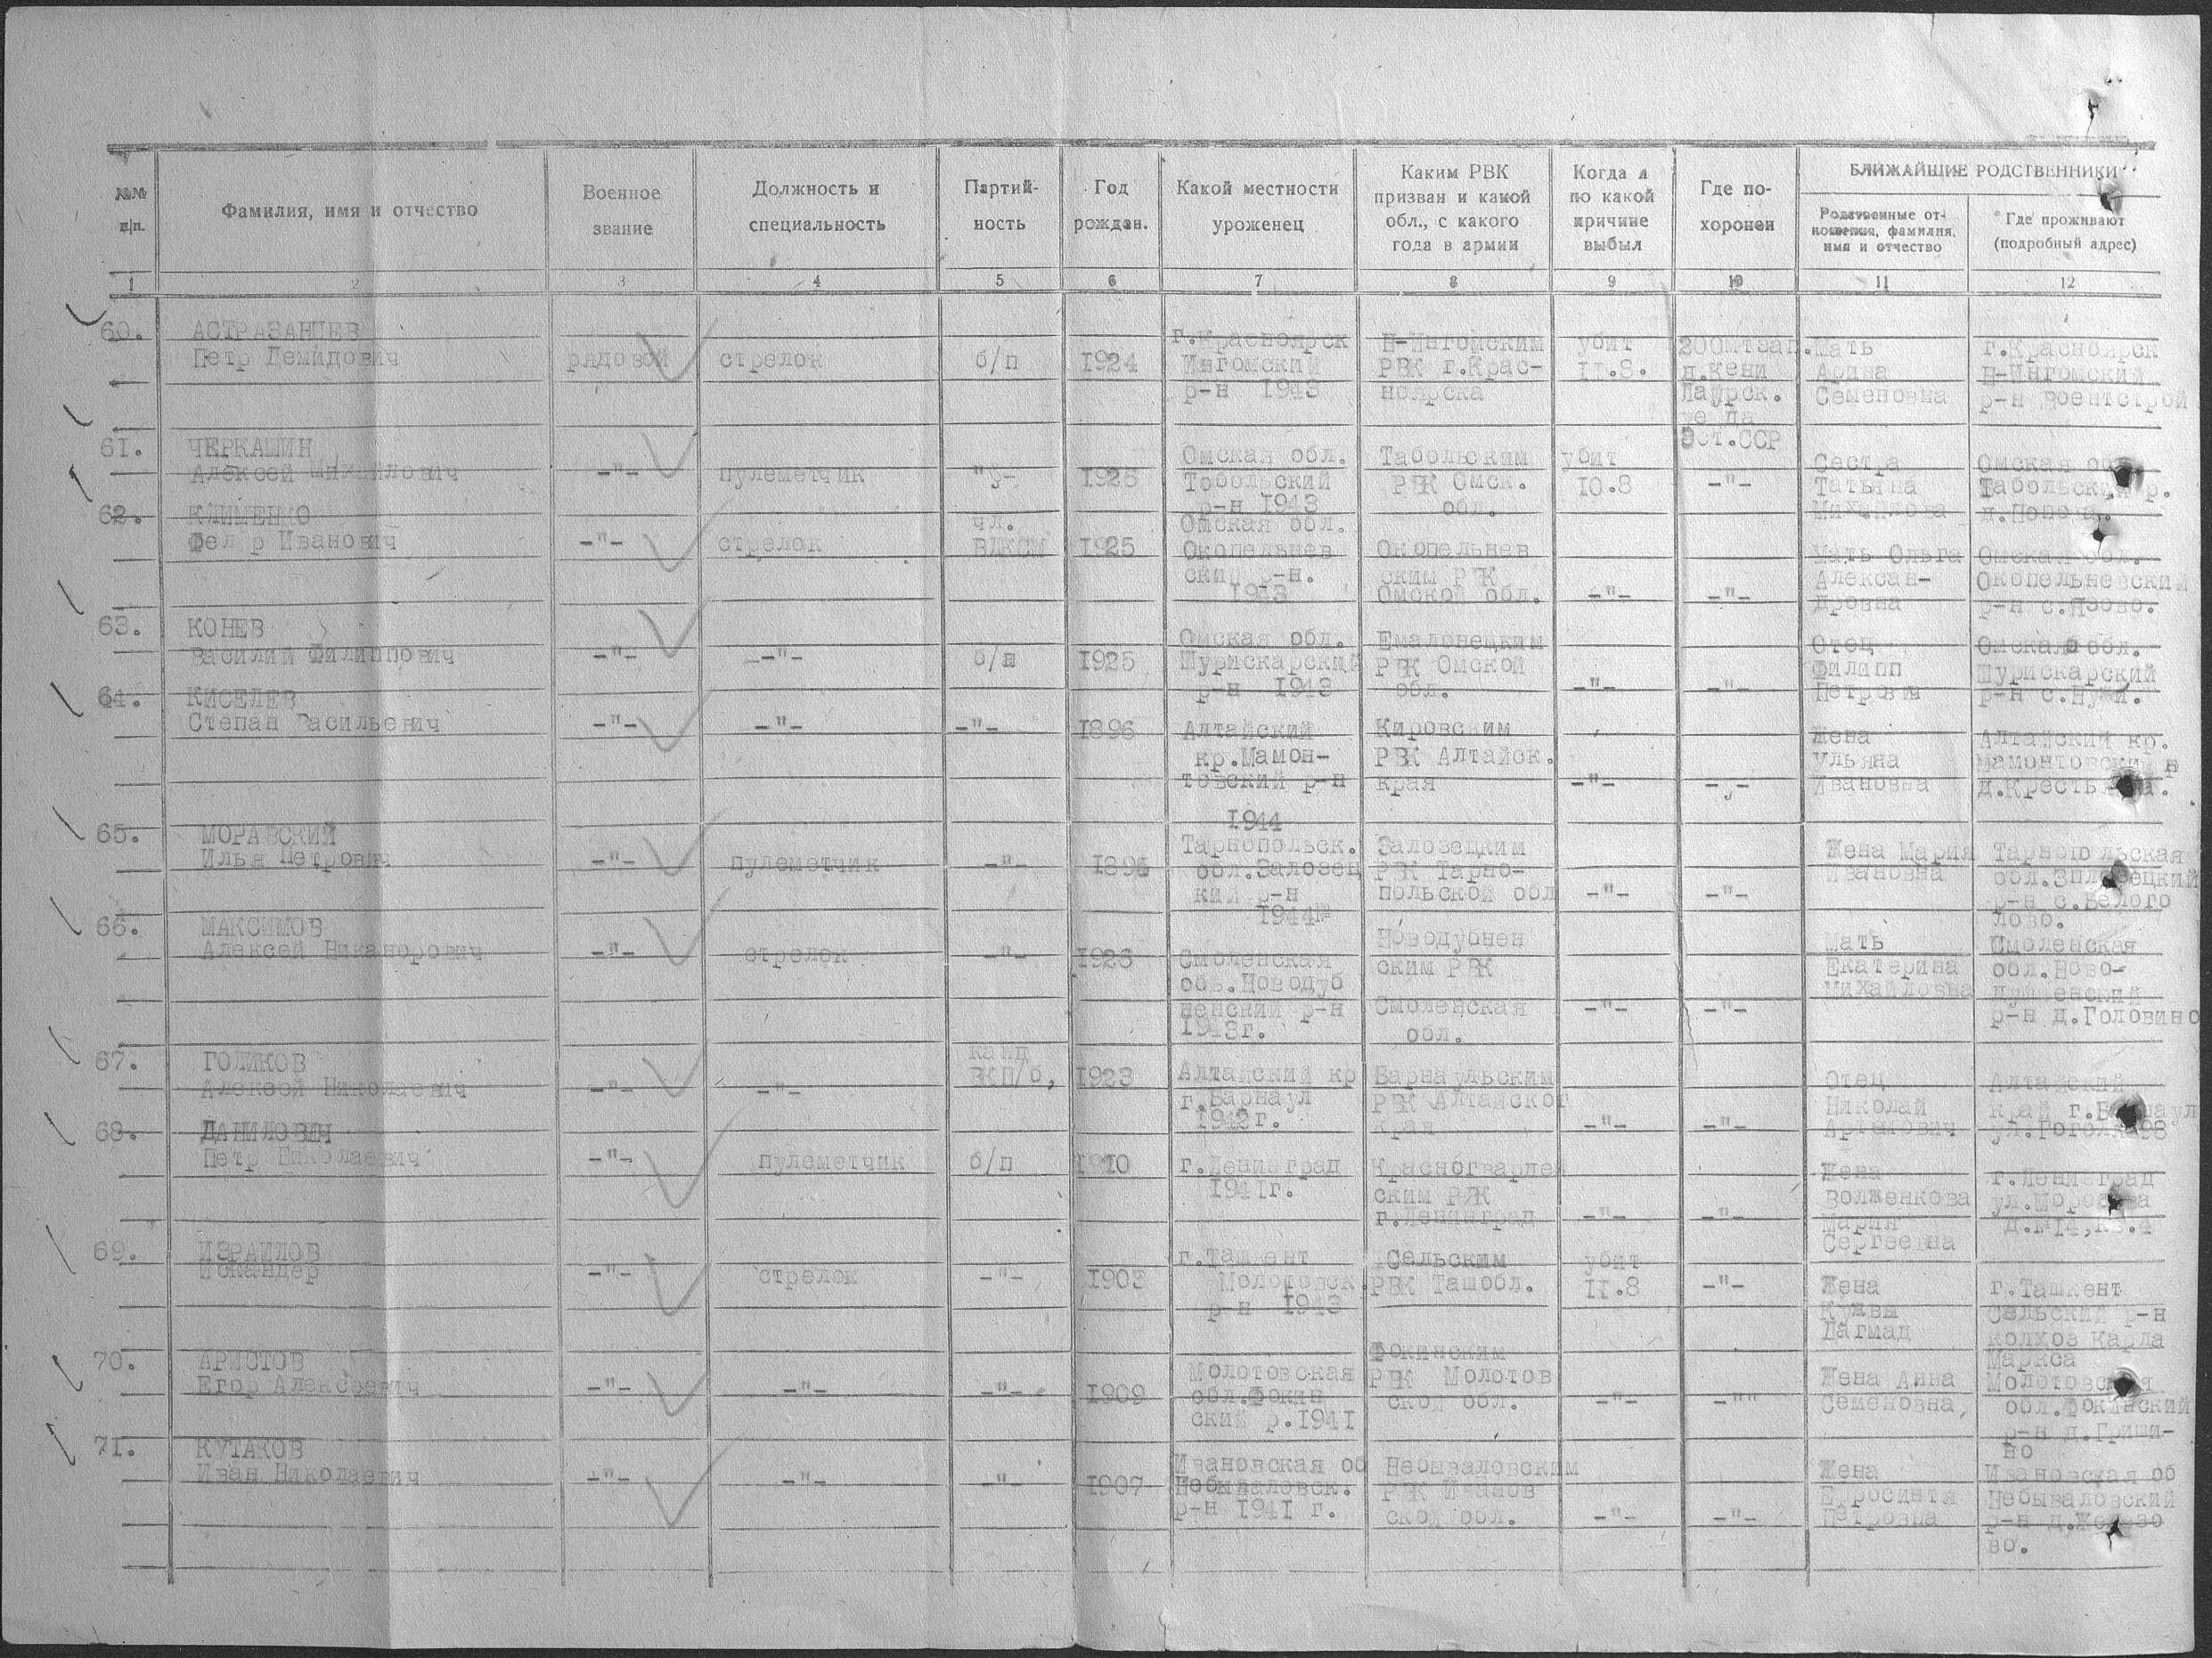 №№ п/п.
Фамилия, имя и отчество
Военное звание
Должность и специальность
Партий- ность
Год рожден.
Какой местности уроженец
Каким РВК призван и какой обл., с какого года в армии
Когда и по какой причине выбыл
Где по- хоронен
БЛИЖАЙШИЕ РОДСТВЕННИКИ
Родственные от- ношения, фамилия, имя и отчество
Где проживают (подробный адрес)
1 2 3 4 5 6 7 8 9 10 11 12
60. АСТРАЗАНЦЕВ
Петр Демидович
рядовой
стрелок
б/п
1924
г.Красноярск
Ингомский
р-н 1943
П-Ингомским
РВК г.Крас-
ноярска
убит
11.8.
200мтзап.
д.кени
Лаурск.
Эст.ССР
Мать
Арина
Семеновна
г.Красноярск
П-Ингомский
р-н Военстрой
61. ЧЕРКАШИН
Алексей Михайлович
-"-
пулеметчик
1926
Омская обл.
Тобольский
р-н 1943
Табольским
РВК Омск.
обл.
убит
10.8
-"-
Сестра
Татьяна
Михайлова
Омская обл.
Табольский р.
62. КЛИМЕНКО
Федор Иванович
-"-
стрелок
чл.
ВЛКСМ
1925
Омская обл.
Окопельнев
ский р-н.
1943
Окопельнев
ским РВК
Омской обл.
-"-
-"-
Мать Ольга
Алексан-
дровна
Омская обл.
Окопельневский
р-н с.Язово.
63. КОНЕВ
Василий Филиппович
-"-
-"-
б/п
1925
Омская обл.
Шурискарский
р-н 1943
Емалонецким
РВК Омской
обл.
-"-
-"-
Отец
Филипп
Петрович
Омская обл.
Шурискарский
64. КИСЕЛЕВ
Степан Васильевич
-"-
-"-
-"-
1896
Алтайский
кр.Мамон-
товский р-н
1944
Кировским
РВК Алтайск.
края
-"-
-"-
Жена
Ульяна
Ивановна
Алтайский кр.
Мамонтовский р
65. МОРАВСКИЙ
Илья Петрович
-"-
пулеметчик
-"-
Тарнопольск.
обл.Залозец
кий р-н
1944
Залозецким
РВК Тарно-
польской обл
-"-
-"-
Жена Мария
Ивановна
Тарнопольская
р-н с.Белого
лово.
66. МАКСИМОВ
Алексей Никанорович
-"-
стрелок
-"-
1926
Смоленская
обл.Новодуб
ненский р-н
1943г.
Новодубнен
ским РВК
Смоленская
обл.
-"-
-"-
Мать
Екатерина
Михайловна
Смоленская
обл.Ново-
р-н д.Головино
67. ГОЛИКОВ
Алексей Николаевич
-"-
-"-
канд
ВКП/б,
1923
Алтайский кр
г.Барнаул
1942г.
Барнаульским
РВК Алтайског
края
-"-
-"-
Отец
Николай
Артамович
Алтайский
край г.Барнаул
68. ДАНИЛОВИЧ
Петр Николаевич
-"-
пулеметчик
б/п
1910
г.Ленинград
1941г.
Красногвардей
ским РВК
г.Ленинград
-"-
-"-
Жена
Волженкова
Мария
Сергеевна
г.Ленинград
69. ИЗРАИЛОВ
Искандер
-"-
стрелок
-"-
1903
г.Ташкент
Молотовск.
р-н 1943
Сельским
РВК Ташобл.
убит
11.8
-"-
Жена
Дагмад
г.Ташкент
Сельский р-н
колхоз Карла
Маркса
70. АРИСТОВ
Егор Алексеевич
-"-
-"-
-"-
1909
Молотовская
обл.Фокин
ский р.1941
Фокинским
РВК Молотов
ской обл.
-"-
-""
Жена Анна
Семеновна,
Молотовская
обл.Фокинский
р-н д.Гриши-
но
71. КУТАКОВ
Иван Николаевич
-"-
-"-
-"-
1907
Ивановская об
Небываловск.
р-н 1941 г.
Небываловским
РВК Иванов
ской обл.
-"-
-"-
Жена
Ефросинтя
Петровна
Ивановская об
Небываловский
во.